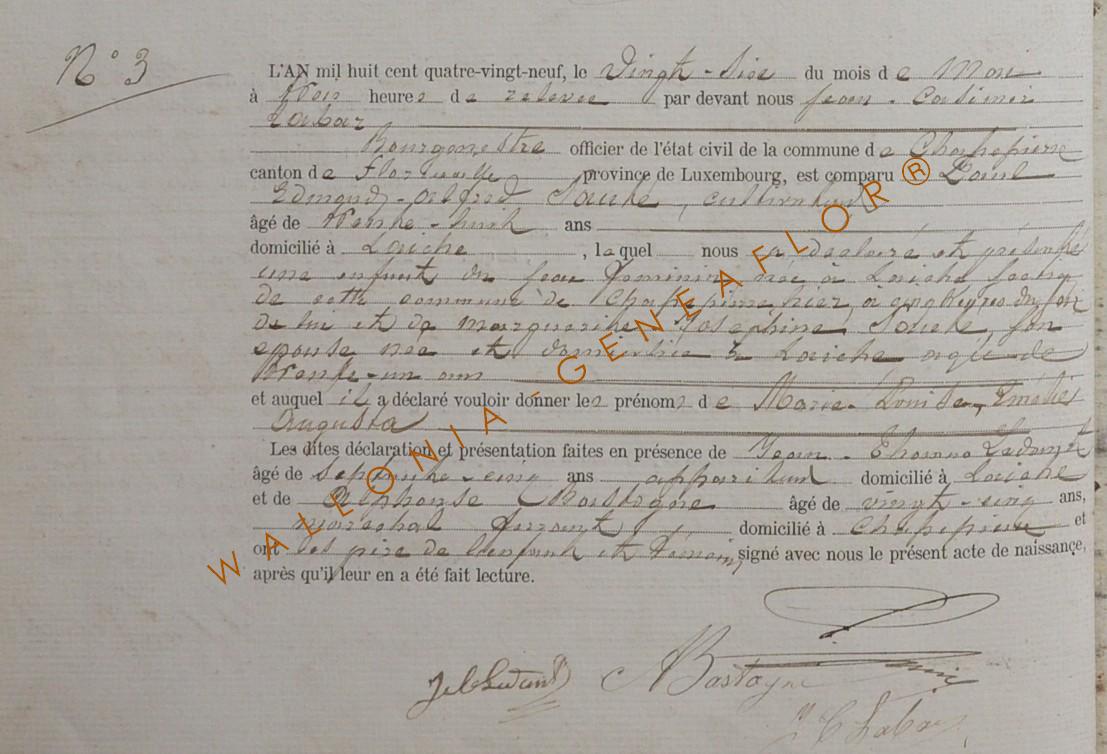 N° 3
L'AN mil huit cent quatre-vingt-neuf, le Vingt-Six du mois de Mai
à Trois heures de relevée par devant nous Jean-Casimir
Labar
Bourgmestre officier de l'état civil de la commune de Chassepierre
canton de Florenville province de Luxembourg, est comparu Paul
Edmond-Alfred Jacché, cultivateur
âgé de Trente-huit ans
domicilié à Laiche, laquel nous a déclaré et présenté
une enfant du sexe féminin née à Laiche section
de cette commune de Chassepierre, hier, à cinq heures du soir
de lui et de Marguerite Josephine son
epouse née et domiciliée à Laiche agée de
Trente-un ans
et auquel il a déclaré vouloir donner les prénoms de Marie-Louise-Amélie
Augusta
Les dites déclaration et présentation faites en présence de Jean-
âgé de septante-cinq ans appariteur domicilié à Laiche
et de Alphonse Bastogne âgé de vingt-cinq ans,
maréchal ferrant domicilié à Chassepierre et
ont les père de l'enfant et témoins signé avec nous le présent acte de naissance,
après qu'il leur en a été fait lecture.
ABastogne
J C Labar
WALFONIA-GENEAFLOR®